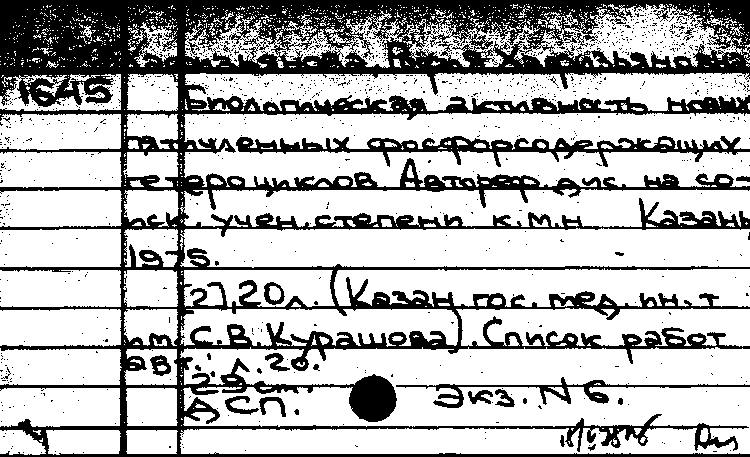 Хафизьяновна
1645 Биологическая активность новых
пятичленных фосфорсодержащих
гетероциклов. Автореф. дис. на со-
иск. учен. степени к.м.н. Казань,
1975.
[2], 20 л. (Казан. гос. мед. ин-т
им. С.В. Курашова). Список работ
авт.: л. 20.
29 ст.
СП. Экз. N 6.